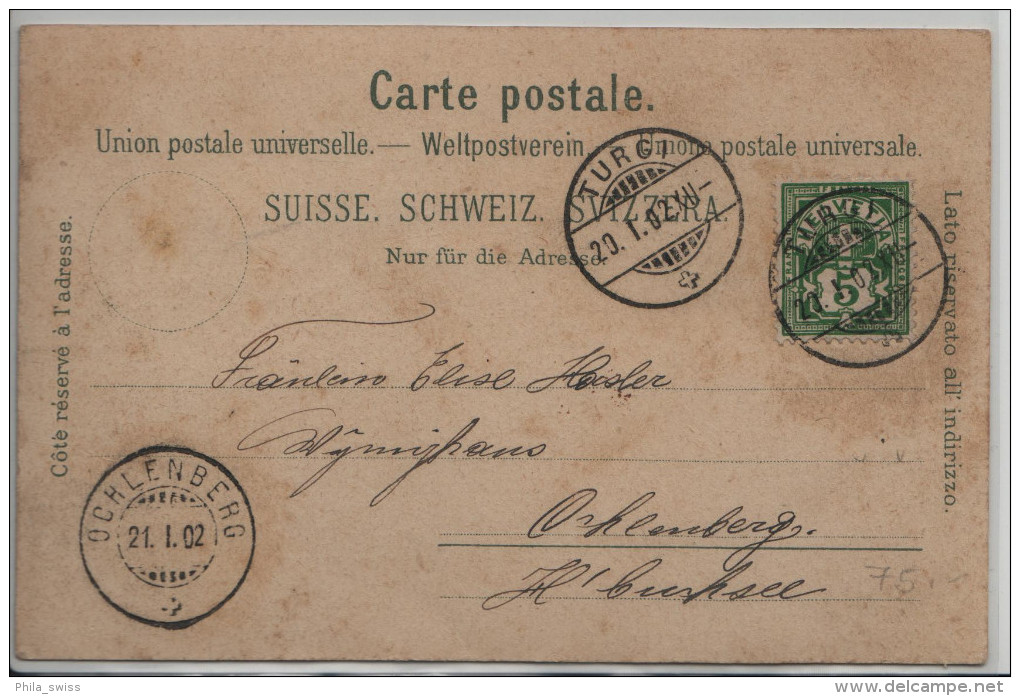 Carte postale.
Union postale universelle. — Weltpostverein. Unione postale universale.
SUISSE. SCHWEIZ. SVIZZERA.
Nur für die Adresse.
Côté réservé à l'adresse.
Lato riservato all' indirizzo.
TURGI
20. I. 02. XII –
HELVETIA
5
Fräulein Elise Hasler
Ochlenberg.
H'buchsee
OCHLENBERG
21. I. 02
75
Phila_swiss
delcampe.net